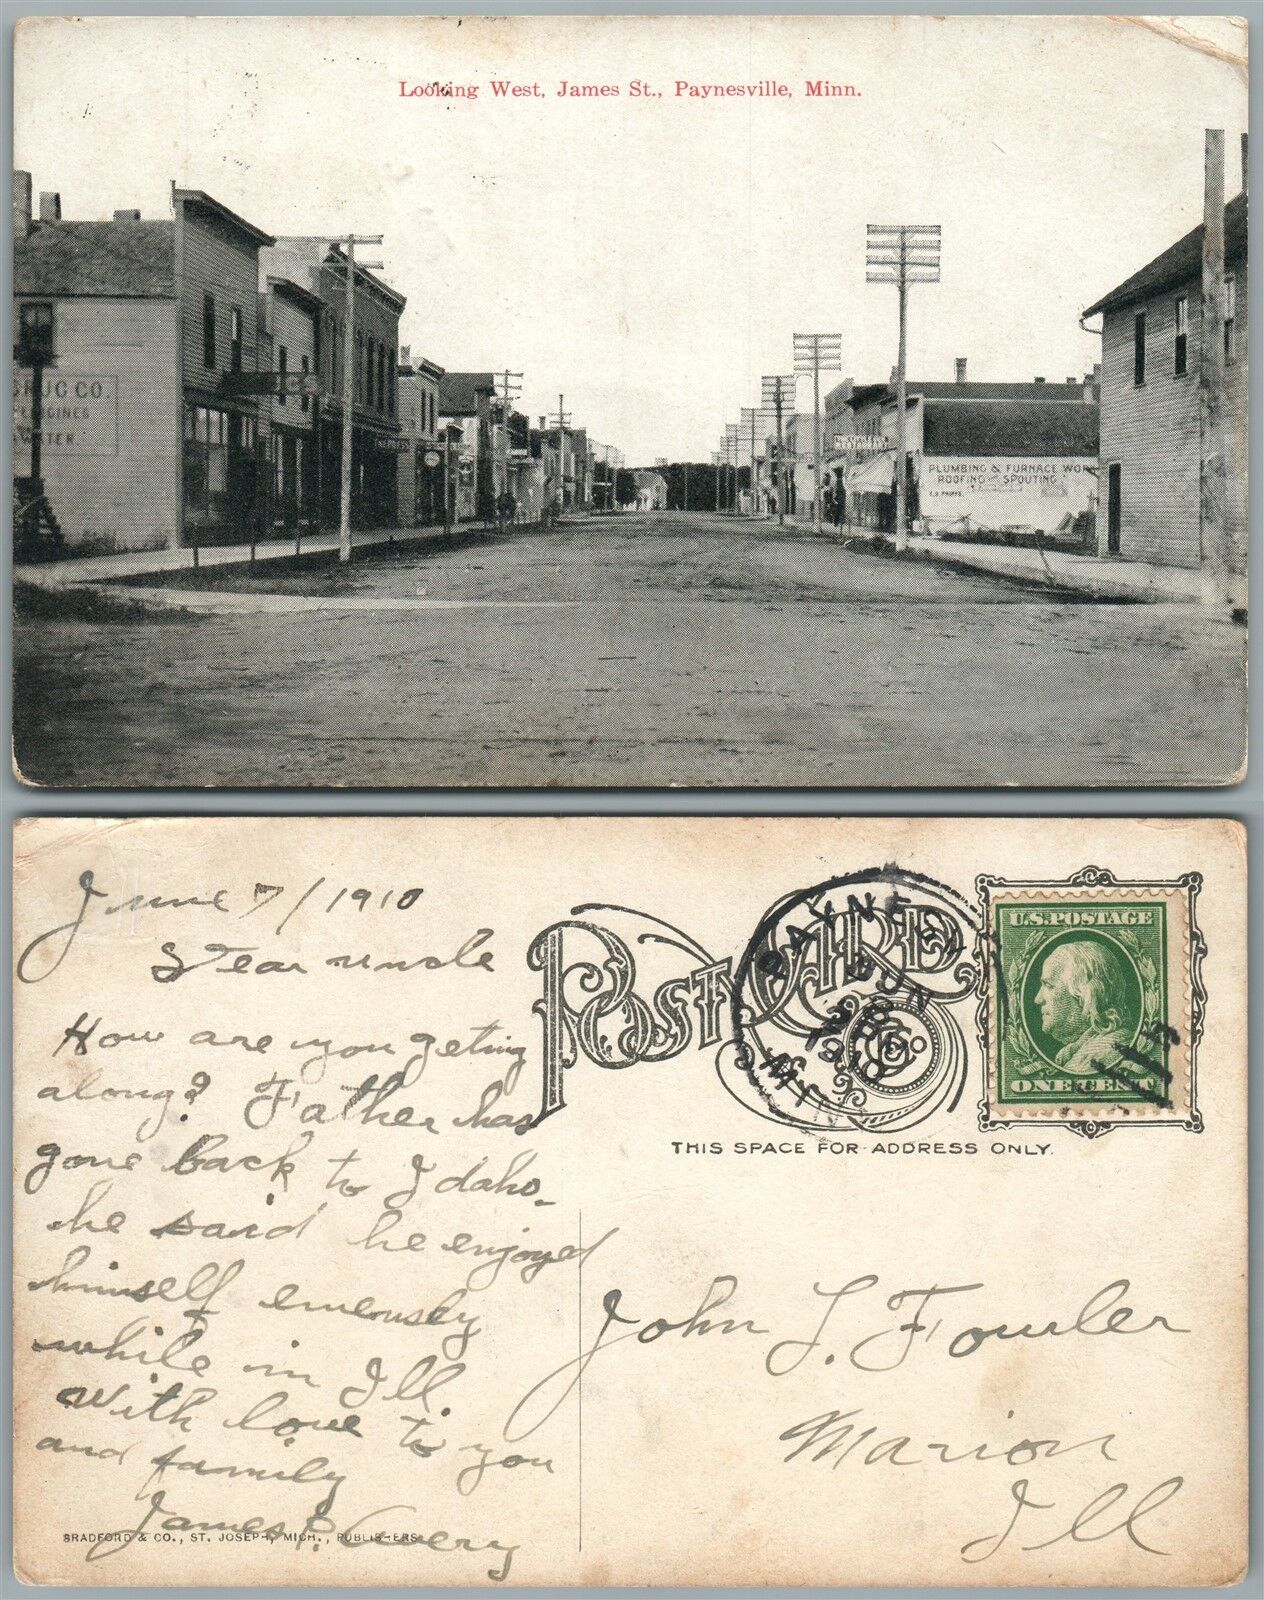 Looking West, James St., Paynesville, Minn.
DRUG CO.
WATER
PLUMBING & FURNACE WORK
ROOFING AND SPOUTING
June 7/1910
Dear uncle
How are you geting
along? Father has
gone back to Idaho.
he said he enjoyed
himself emensely
while in Ill.
With love to you
and family
James P. Avery
BRADFORD & CO., ST. JOSEPH, MICH., PUBLISHERS
POST CARD
PAYNESV
JUN
8
1910
MINN
U.S. POSTAGE
ONE CENT
THIS SPACE FOR ADDRESS ONLY.
John L. Fowler
Marion
Ill